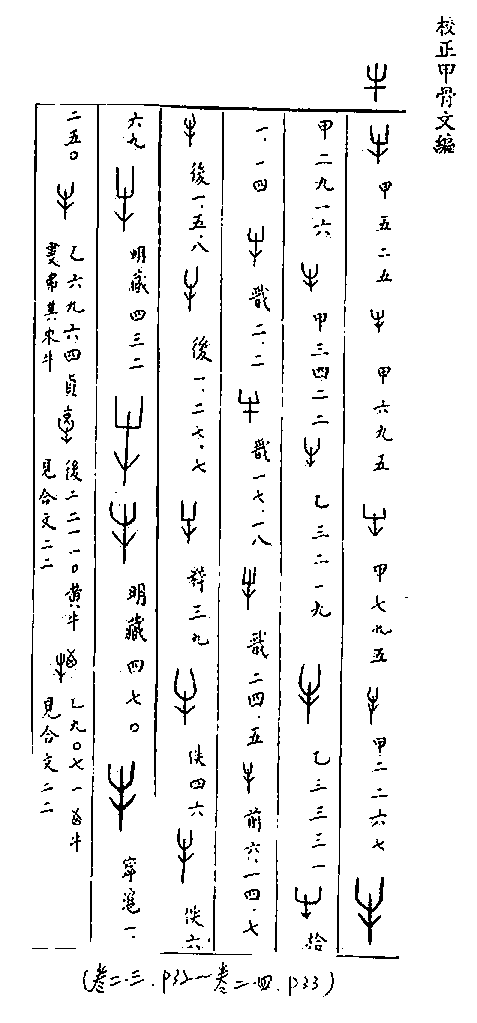 校正甲骨文編
牛
甲五二五 甲六九五 甲七九五 甲二二六七
甲二九一六 甲三四二二 乙三二一九 乙三三三一 拾
一·一四 戩二·二 戩一七·一八 戩二四·五 前六·一四·七
後一·五·八 後一·二七·七 粹三九 佚四六 佚六
六九 明藏四三二 明藏四七〇 寧滬一·
二五〇 乙六九六四貞 後二二一一〇黃牛 見合文二二 乙九〇七一 牛 見合文二二
(卷二·三.P32—卷二·四.P33)